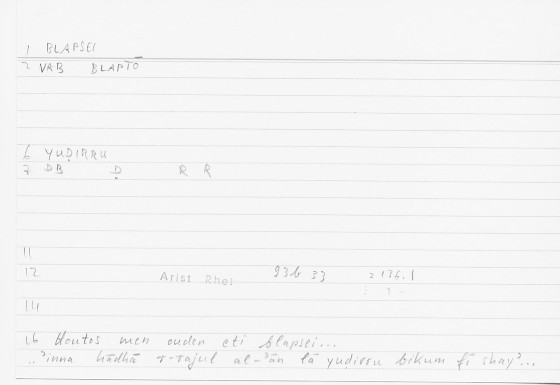 1 BLAPSEI
2 VAB BLAPTŌ
6 YUḌIRRU
7 DB Ḍ R R
11
12 Arist Rhet 93b 33 2176.1
14
16 Houtos men ouden eti blapsei...
..ʾinna hādhā r-rajul al-ʾān lā yuḍirru bikum fī shayʾ...